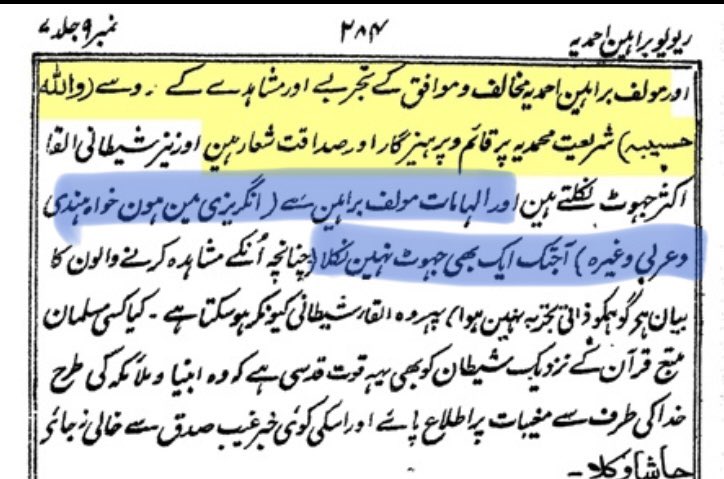 ریویو براہین احمدیہ ۲۸۴ نمبر ۹ جلد ۷
اور مولف براہین احمدیہ مخالف و موافق کے تجربے اور مشاہدے کے روسے (واللہ
حسیبہ) شریعت محمدیہ پر قائم و پرہیزگار اور صداقت شعار ہین اور نیز شیطانی القا
اکثر جہوٹ نکلتے ہین اور الہامات مولف براہین سے (انگریزی مین ہون خواہ ہندی
وعربی وغیرہ) آجتک ایک بھی جہوٹ نہین نکلا (چنانچہ اُنکے مشاہدہ کرنے والون کا
بیان ہی گو ہمکو ذاتی تجربہ نہین ہوا) پہر وہ القاء شیطانی کیونکر ہوسکتا ہے۔ کیا کسی مسلمان
متبع قرآن کے نزدیک شیطان کو بھی یہہ قوت قدسی ہے کہ وہ انبیا و ملائکہ کی طرح
خدا کی طرف سے مغیبات پر اطلاع پائے اور اسکی کوئی خبر غیب صدق سے خالی نہ جائے
حاشا و کلا۔